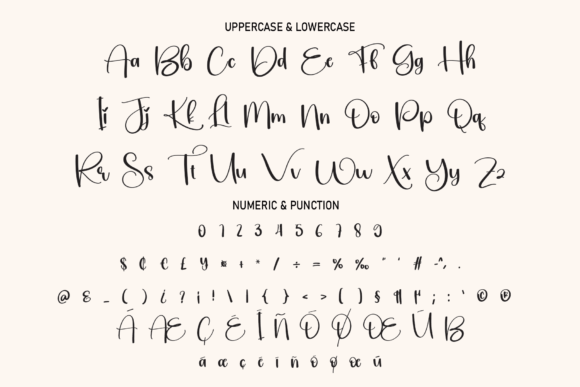 UPPERCASE & LOWERCASE
Aa Bb Cc Dd Ee Ff Gg Hh
Ii Jj Kk Ll Mm Nn Oo Pp Qq
Rr Ss Tt Uu Vv Ww Xx Yy Zz
NUMERIC & PUNCTION
0 1 2 3 4 5 6 7 8 9
$ ¢ € £ ¥ ¤ + * / ÷ = % ‰ " ' # -^, .
@ & _ ( ) ¿ ? ¡ ! \ | { } < > ( ) § ¶ ; : ' © ®
Á Æ Ç É Í Ñ Ó Ø Œ Ú ß
á æ ç é í ñ ó ø œ ú